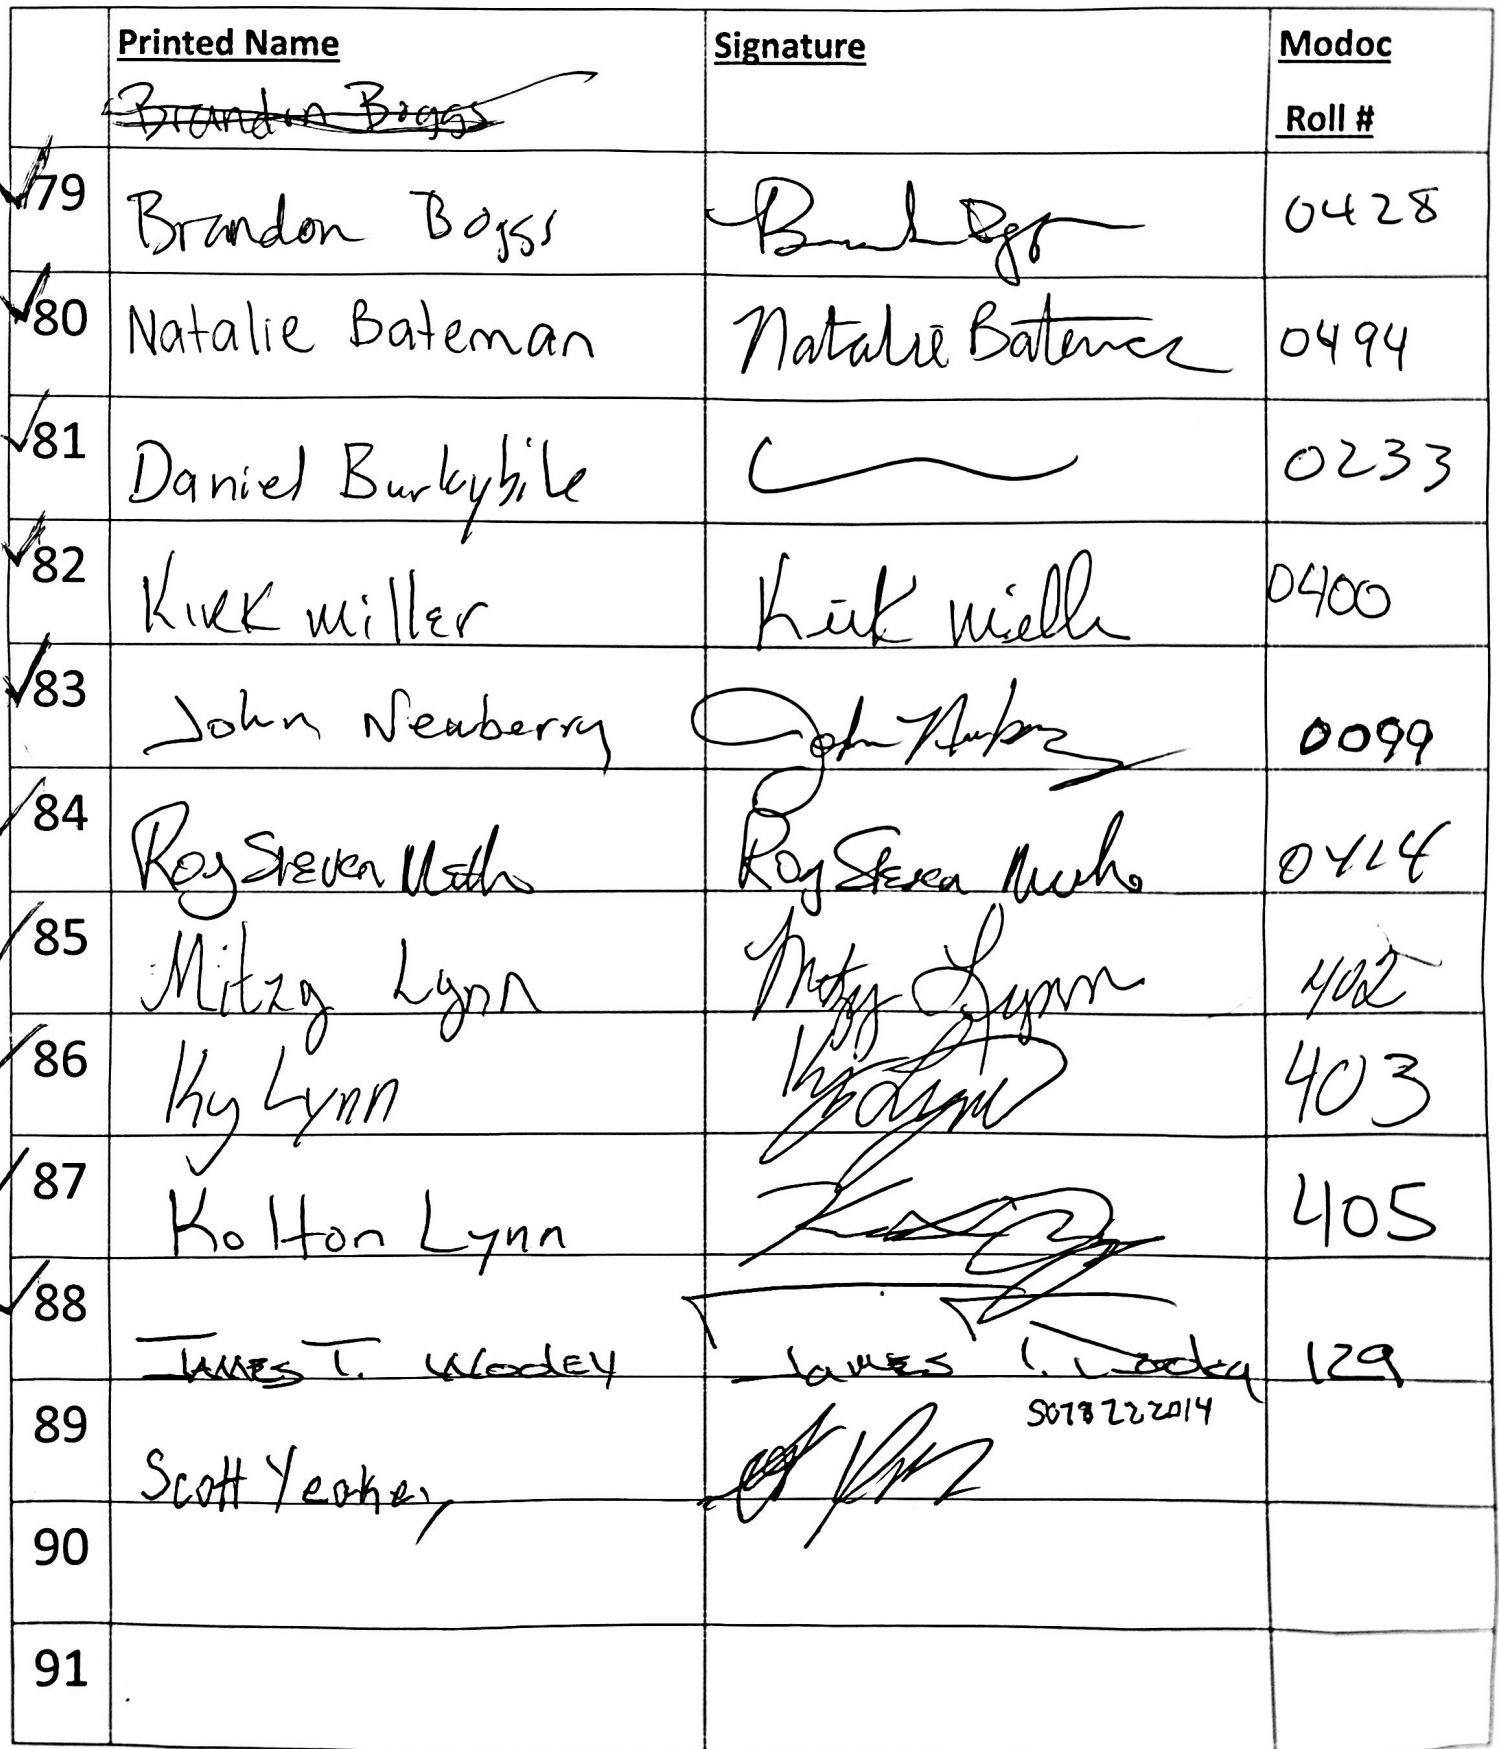 Printed Name Signature Modoc
Roll #
Brandon Boggs
79 Brandon Boggs 0428
80 Natalie Bateman Natalie Bateman 0494
81 Daniel Burkybile 0233
82 Kirk Miller Kirk Miller 0400
83 John Newberry John Newberry 0099
84 Roy Steven Roy Steven 0414
85 Mitzy Lynn Mitzy Lynn 402
86 Ky Lynn Ky Lynn 403
87 Kolton Lynn 405
88 James T. Wooley James T. Wooley 129
89 Scott
90
91